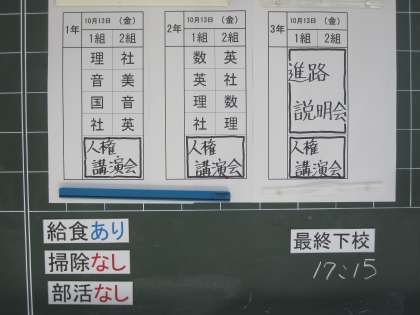 1年 10月13日 (金)
1組 2組
理 社
音 美
国 音
社 英
人権
講演会
2年 10月13日 (金)
1組 2組
数 英
英 社
理 数
社 理
人権
講演会
3年 10月13日 (金)
1組 2組
進路
説明会
人権
講演会
給食あり
掃除なし
部活なし
最終下校
17:15